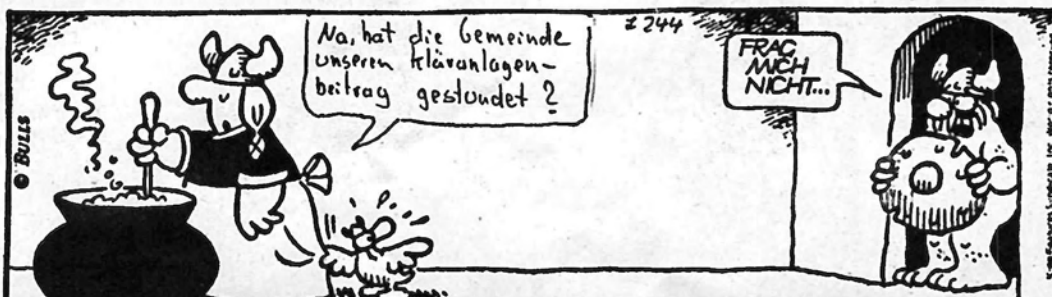 Na, hat die Gemeinde
unseren Kläranlagen-
beitrag gestundet ?
z 244
FRAG
MICH
NICHT...
© BULLS